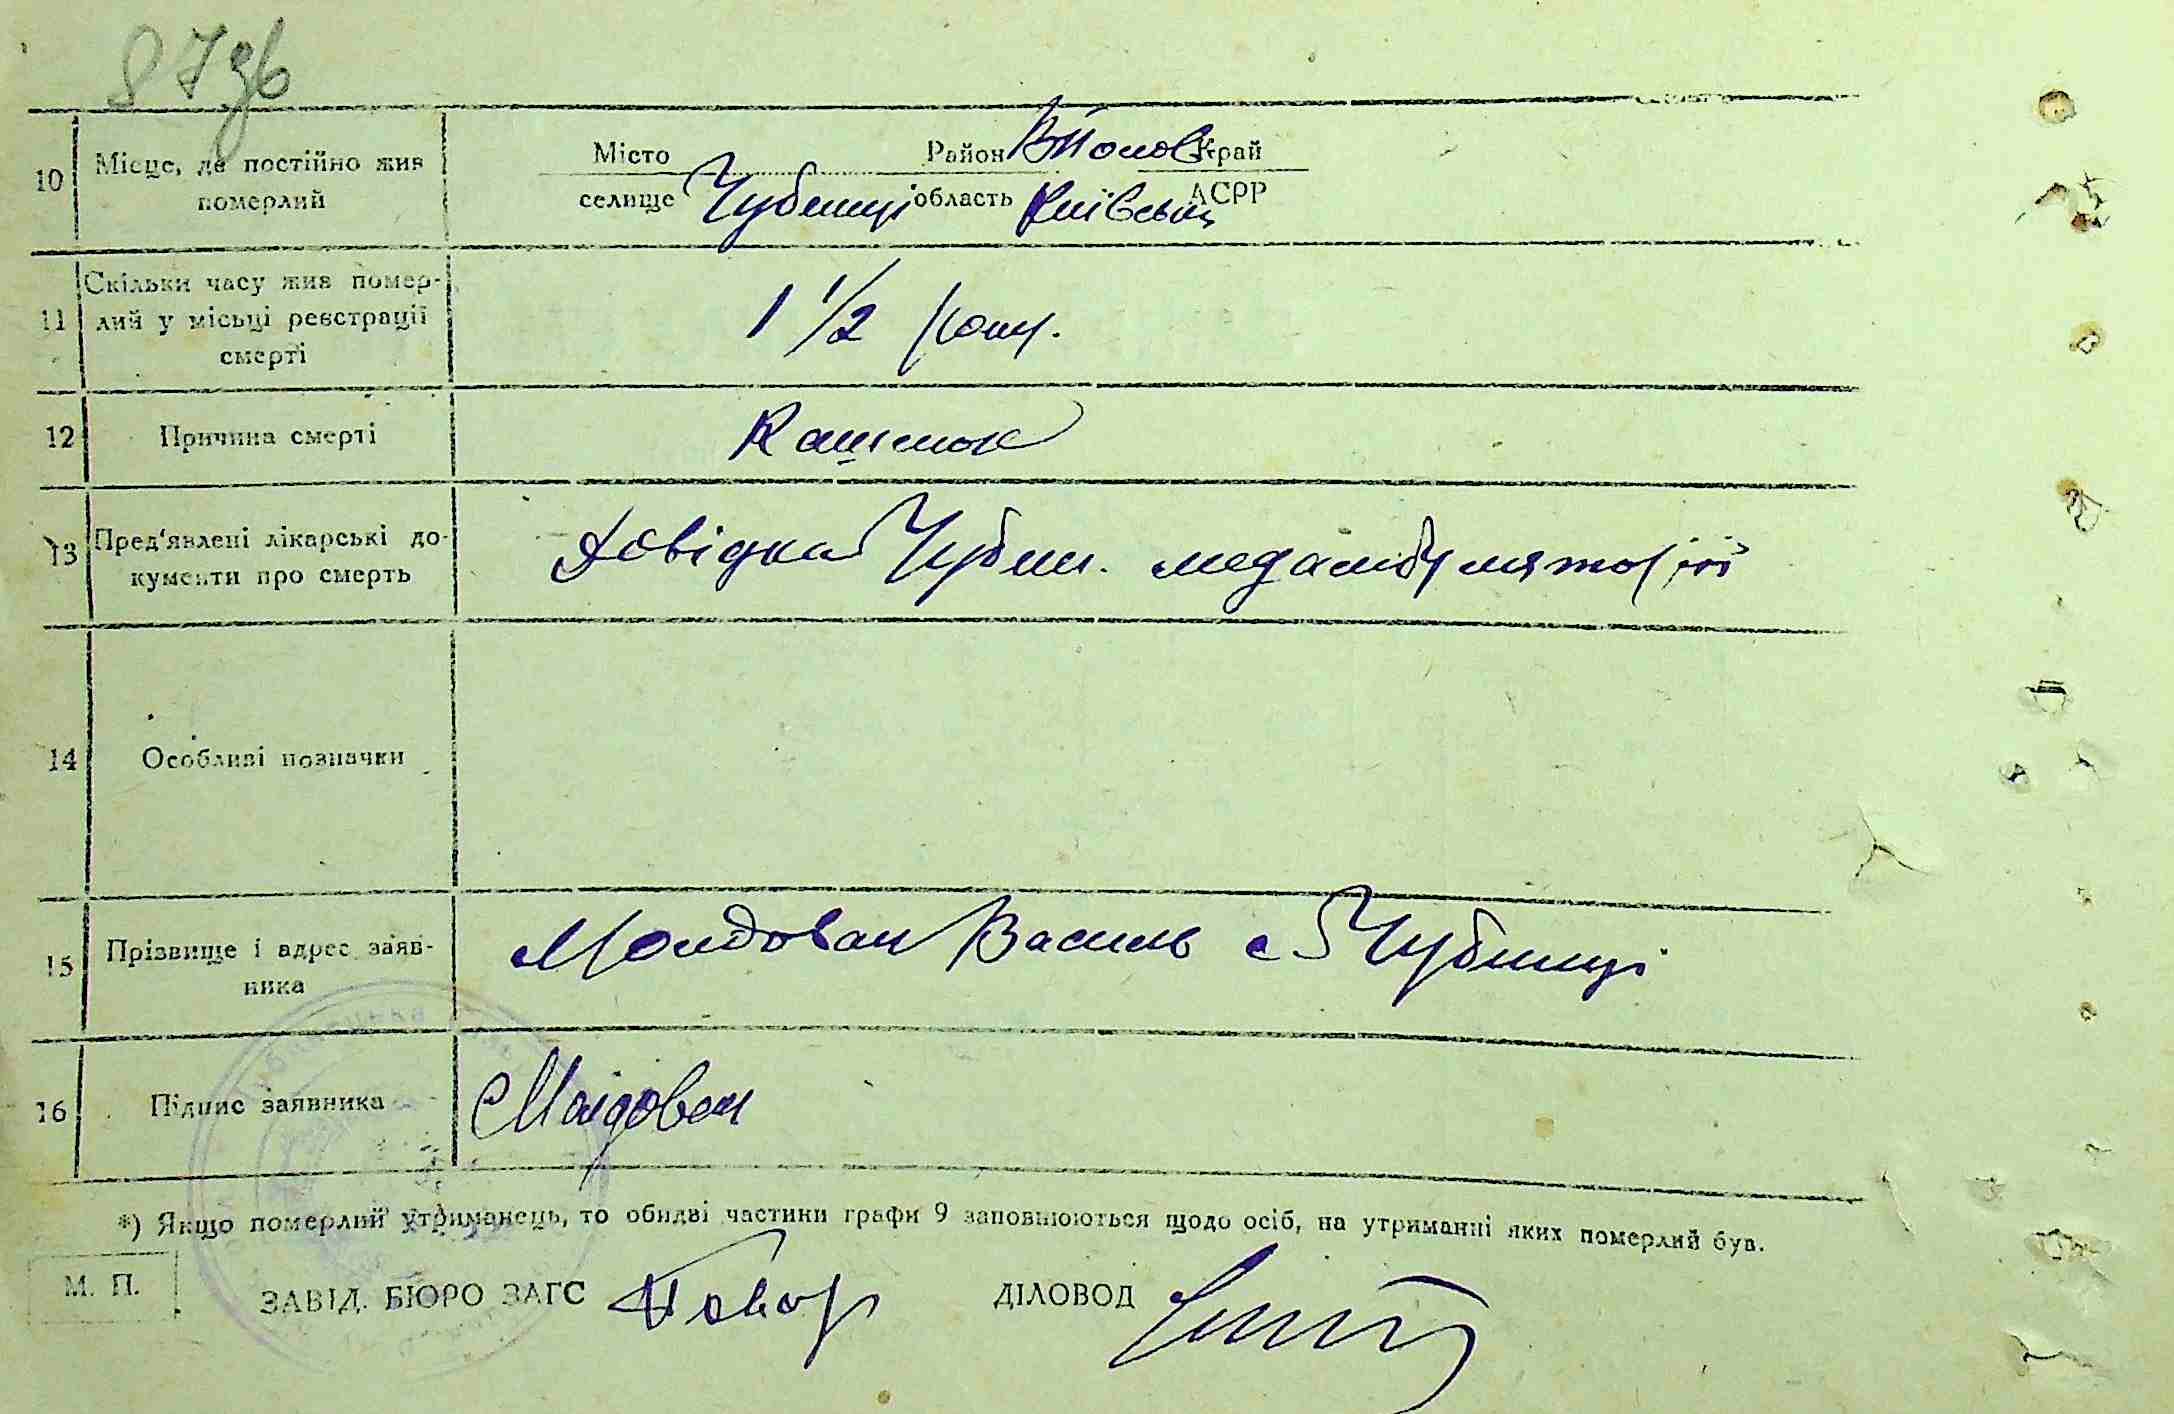 87зв
10 Місце, де постійно жив Місто Район В Полов Край
померлий селище Чубинці область Київськ АСРР
Скільки часу жив помер-
11 лий у місьці реєстрації 1 1/2 року.
смерті
12 Причина смерті Кашлюк
13 Пред'явлені лікарські до- Довідка Чубин. медамбуляторії
кументи про смерть
14 Особливі позначки
15 Прізвище і адрес заяв- Молдован Василь с Чубинці
ника
16 Підпис заявника Молдован
*) Якщо померлий утриманець, то обидві частини графи 9 заповнюються щодо осіб, на утриманні яких померлий був.
М. П. ЗАВІД. БЮРО ЗАГС ДІЛОВОД